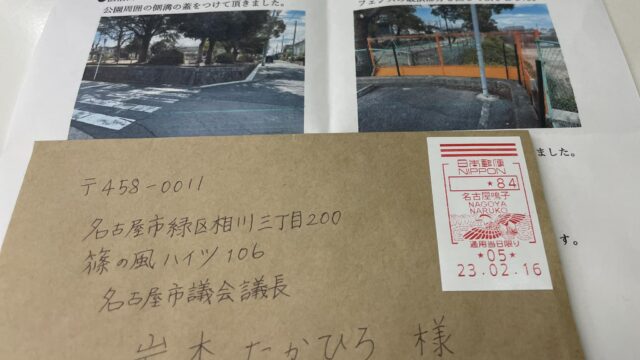 公園周囲の側溝の蓋をつけて頂きました。
ました。
す。
〒458-0011
名古屋市緑区相川三丁目200
篠の風ハイツ106
名古屋市議会議長
岩本たかひろ 様
日本郵便
NIPPON
*84
名古屋鳴子
NAGOYA
NARUKO
通用当日限り
*05*
23.02.16